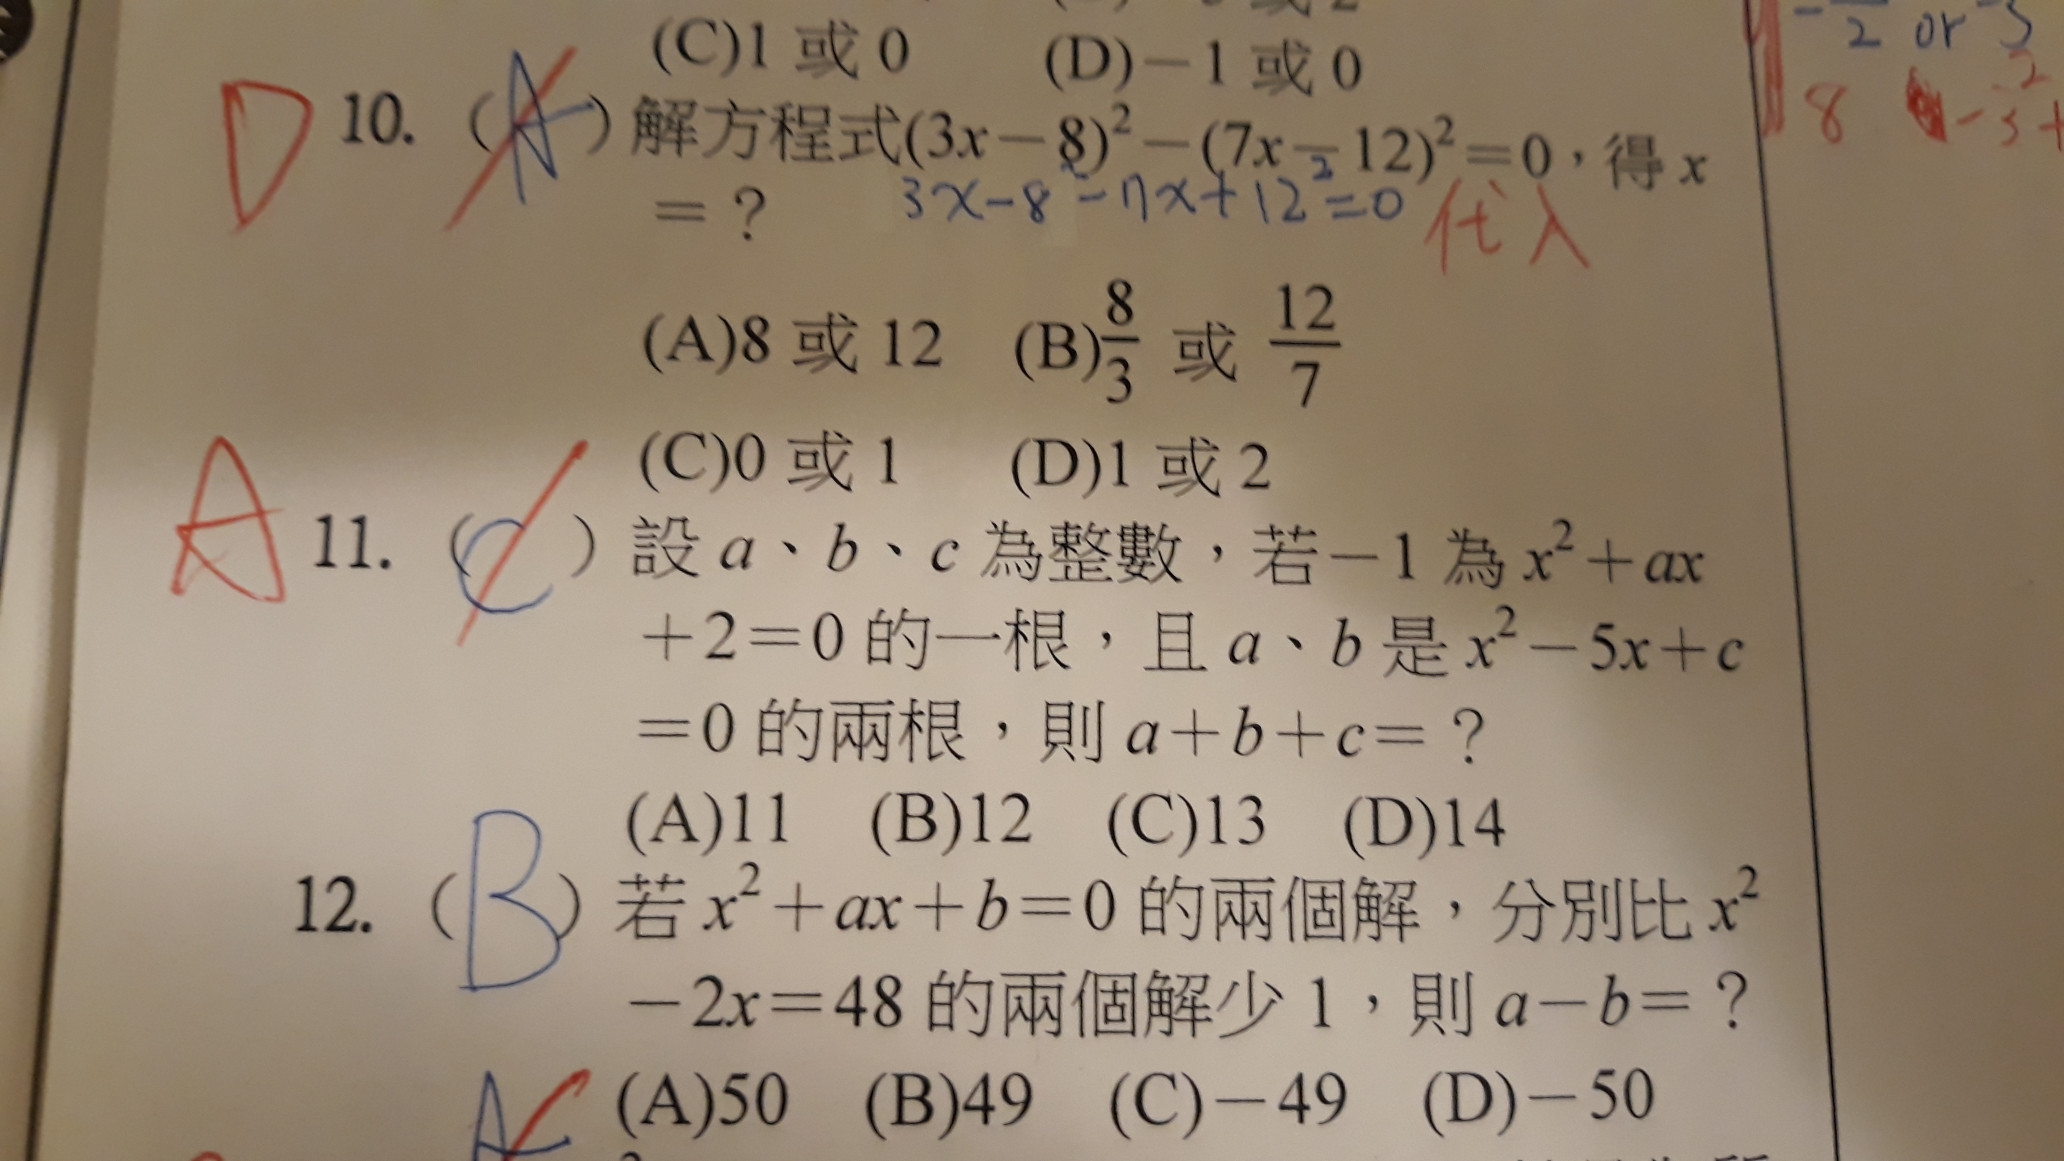 (C)1 或 0 (D)－1 或 0
－ 2 or
8
D 10. (A) 解方程式(3x－8)²－(7x－12)²＝0，得 x
＝？ 3x-8²-7x+12²=0 代入
(A)8 或 12 (B)8/3 或 12/7
(C)0 或 1 (D)1 或 2
A 11. (C) 設 a、b、c 為整數，若－1 為 x²＋ax
＋2＝0 的一根，且 a、b 是 x²－5x＋c
＝0 的兩根，則 a＋b＋c＝？
(A)11 (B)12 (C)13 (D)14
12. (B) 若 x²＋ax＋b＝0 的兩個解，分別比 x²
－2x＝48 的兩個解少 1，則 a－b＝？
A (A)50 (B)49 (C)－49 (D)－50